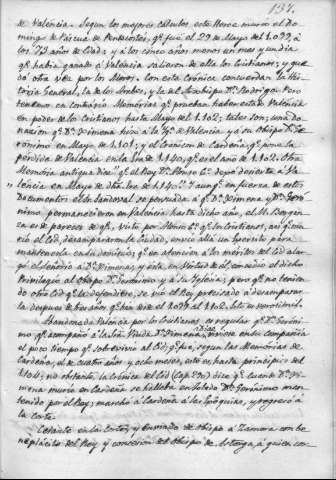 137.
de Valencia. Segun los mejores calculos, este Heroe murió el Do-
mingo de Pascua de Pentecostés, qe. fué el 29 de Mayo del 1.099, à
los 73 años de Edad; y à los cinco años, menos un mes y un dia
qe. habia ganado à Valencia salieron de ella los Cristianos; y que-
dó otra vez por los Moros. Con esta Crónica concuerdan la His-
toria General, la de los Arabes, y la del Arzobispo Dn. Rodrigo. Pero
tenemos en contrario Memorias, qe. prueban haber estado Valencia
en poder de los Cristianos hasta Mayo del 1.102; tales son, una do-
nacion qe. Da. Ximena hizo à la Yga. de Valencia y à su Obispo Dn. Ge-
ronimo en Mayo de 1.101; y el Cronicon de Cardeña, qe. pone la
perdida de Valencia en la Era de 1.140, qe. es el año de 1.102. Otra
Memoria antigua dice " qe. el Rey Dn. Alonso 6.o dejó desierta à Va-
" lencia en Mayo de dha. Era de 1.140." Y aunqe. en fuerza de estos
documentos el Sr. Sandoval se persuadió à qe. Da. Ximena y Dn. Gerò-
nimo, permanecieron en Valencia hasta dicho año, el M. Bergan-
za es de parecer de qe., visto por Alonso 6.o qe. los Cristianos, asi qe. mu-
rió el Cid, desampararon la Ciudad, envió allá un Exercito para
mantenerla en su dominio; qe. en atencion à los meritos del Cid alar-
gó el señorio à Da. Ximena; y esta, en virtud de él, concedió el dicho
Privilegio al Obispo Dn. Geronimo y à su Yglesia; pero qe. no tenien-
do otro Cid qe. la defendiese, se vió el Rey precisado à desamparar-
la despues de tres años, qe. hán de el 1.099 al 1.102. Esto es verosimil.
Abandonada Valencia por los Cristianos es regular qe. Dn. Geroni-
mo, qe. acompañó à la Sra. Viuda Da. Ximena Diaz, viviese en su compañia
el poco tiempo qe. sobrevivió al Cid, qe. fue, segun las Memorias de
Cardeña, el de cuatro años y ocho meses, esto es, hasta principios del
1.104; no obstante, la Crónica del Cid (Cap. 290) dice qe. cuando Da. Xi-
mena murió en Cardeña se hallaba en Toledo Dn. Gerónimo man-
tenido por el Rey; marchó à Cardeña à las Exequias, y regresó à
la Corte.
Estando en la Corte, y enviado de Obispo à Zamora con be-
neplacito del Rey y concesion del Obispo de Astorga, à quien cor-